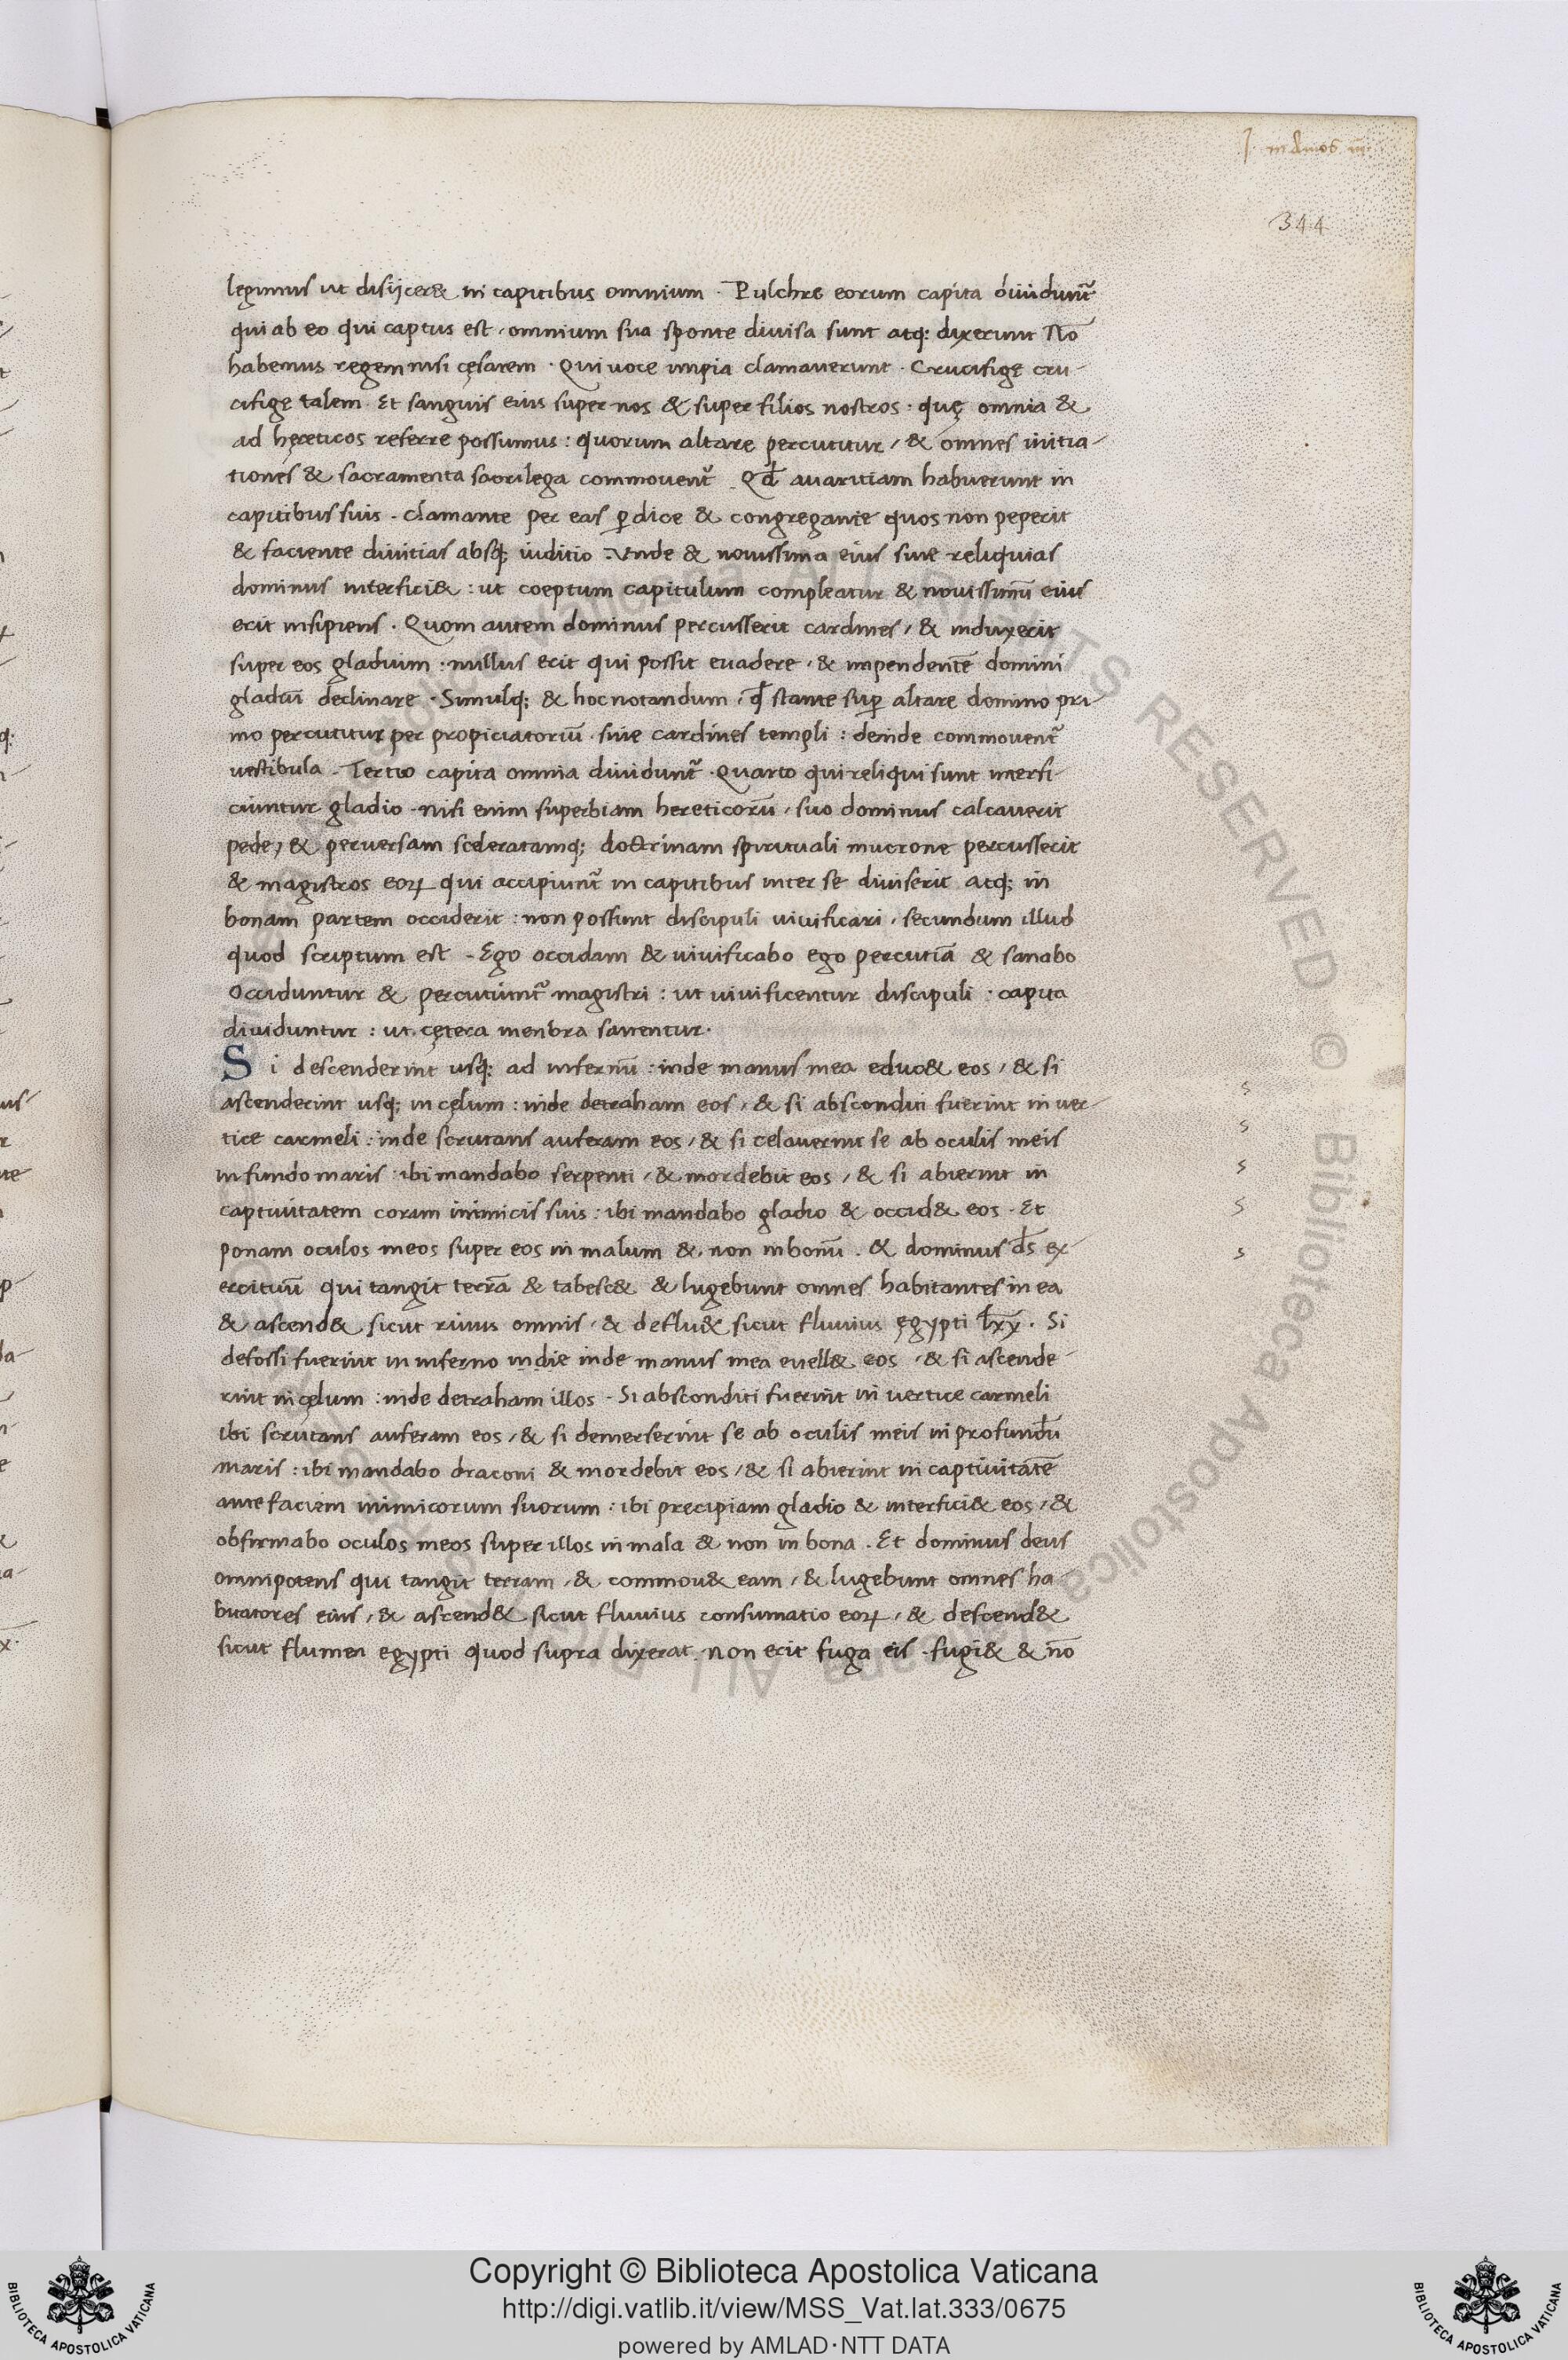 J. in Amos iii
344
legimus ut disijcer& in capitibus omnium · Pulchre eorum capita diuidunt᷑
qui ab eo qui captus est, omnium sua sponte diuisa sunt atq; dixerunt Nō
habemus regem nisi cęsarem · Qui uoce impia clamauerunt · Crucifige cru-
cifige talem · Et sanguis eius super nos & super filios nostros · quę omnia &
ad hęreticos referre possumus : quorum altare percutitur, & omnes initia-
tiones & sacramenta sacrilega commouent᷑ . Qđ auaritiam habuerunt in
capitibus suis . clamante per eas ꝑdice & congregante quos non peperit
& faciente diuitias absq; iuditio . Vnde & nouissima eius siue reliquias
dominus interfici& : ut coeptum capitulum compleatur & nouissimū eius
erit insipiens . Quom autem dominus percusserit cardines, & induxerit
super eos gladium : nullus erit qui possit euadere, & impendentē domini
gladiū declinare . Simulq; & hoc notandum, qđ stante suꝑ altare domino pri-
mo percutitur per propiciatoriū siue cardines templi : deinde commouent᷑
uestibula . Tertio capita omnia diuidunt᷑ . Quarto qui reliqui sunt interfi-
ciuntur gladio . nisi enim superbiam hereticorū, suo dominus calcauerit
pede, & peruersam sceleratamq; doctrinam spirituali mucrone percusserit
& magistros eoꝝ qui accipiunt᷑ in capitibus inter se diuiserit atq; in
bonam partem occiderit : non possunt discipuli uiuificari, secundum illud
quod scriptum est . Ego occidam & uiuificabo ego percutiā & sanabo
Occiduntur & percutiunt᷑ magistri : ut uiuificentur discipuli . capita
diuiduntur : ut cętera menbra sanentur.
Si descenderint usq; ad infernū : inde manus mea educ& eos, & si
ascenderint usq; in cęlum : inde detraham eos, & si absconditi fuerint in uer-
tice carmeli : inde scrutans auferam eos, & si celauerint se ab oculis meis
in fundo maris : ibi mandabo serpenti, & mordebit eos, & si abierint in
captiuitatem coram inimicis suis : ibi mandabo gladio & occid& eos . Et
ponam oculos meos super eos in malum & non in bonū . & dominus ds̄ ex-
ercituū qui tangit terrā & tabesc& & lugebunt omnes habitantes in ea
& ascend& sicut riuus omnis, & deflu& sicut fluuius ęgypti lxx̄ . Si
defossi fuerint in inferno indie inde manus mea euell& eos, & si ascende-
rint in cęlum : inde detraham illos . Si absconditi fuerint in uertice carmeli
ibi scrutans auferam eos, & si demerserint se ab oculis meis in profundū
maris : ibi mandabo draconi & mordebit eos, & si abierint in captiuitatē
ante faciem inimicorum suorum : ibi precipiam gladio & interfici& eos, &
obfirmabo oculos meos super illos in mala & non in bona . Et dominus deus
omnipotens qui tangit terram, & commou& eam, & lugebunt omnes ha-
bitatores eius, & ascend& sicut fluuius consumatio eoꝝ, & descend&
sicut flumen egypti quod supra dixerat . non erit fuga eis . fugi& & nō
Copyright © Biblioteca Apostolica Vaticana
http://digi.vatlib.it/view/MSS_Vat.lat.333/0675
powered by AMLAD·NTT DATA